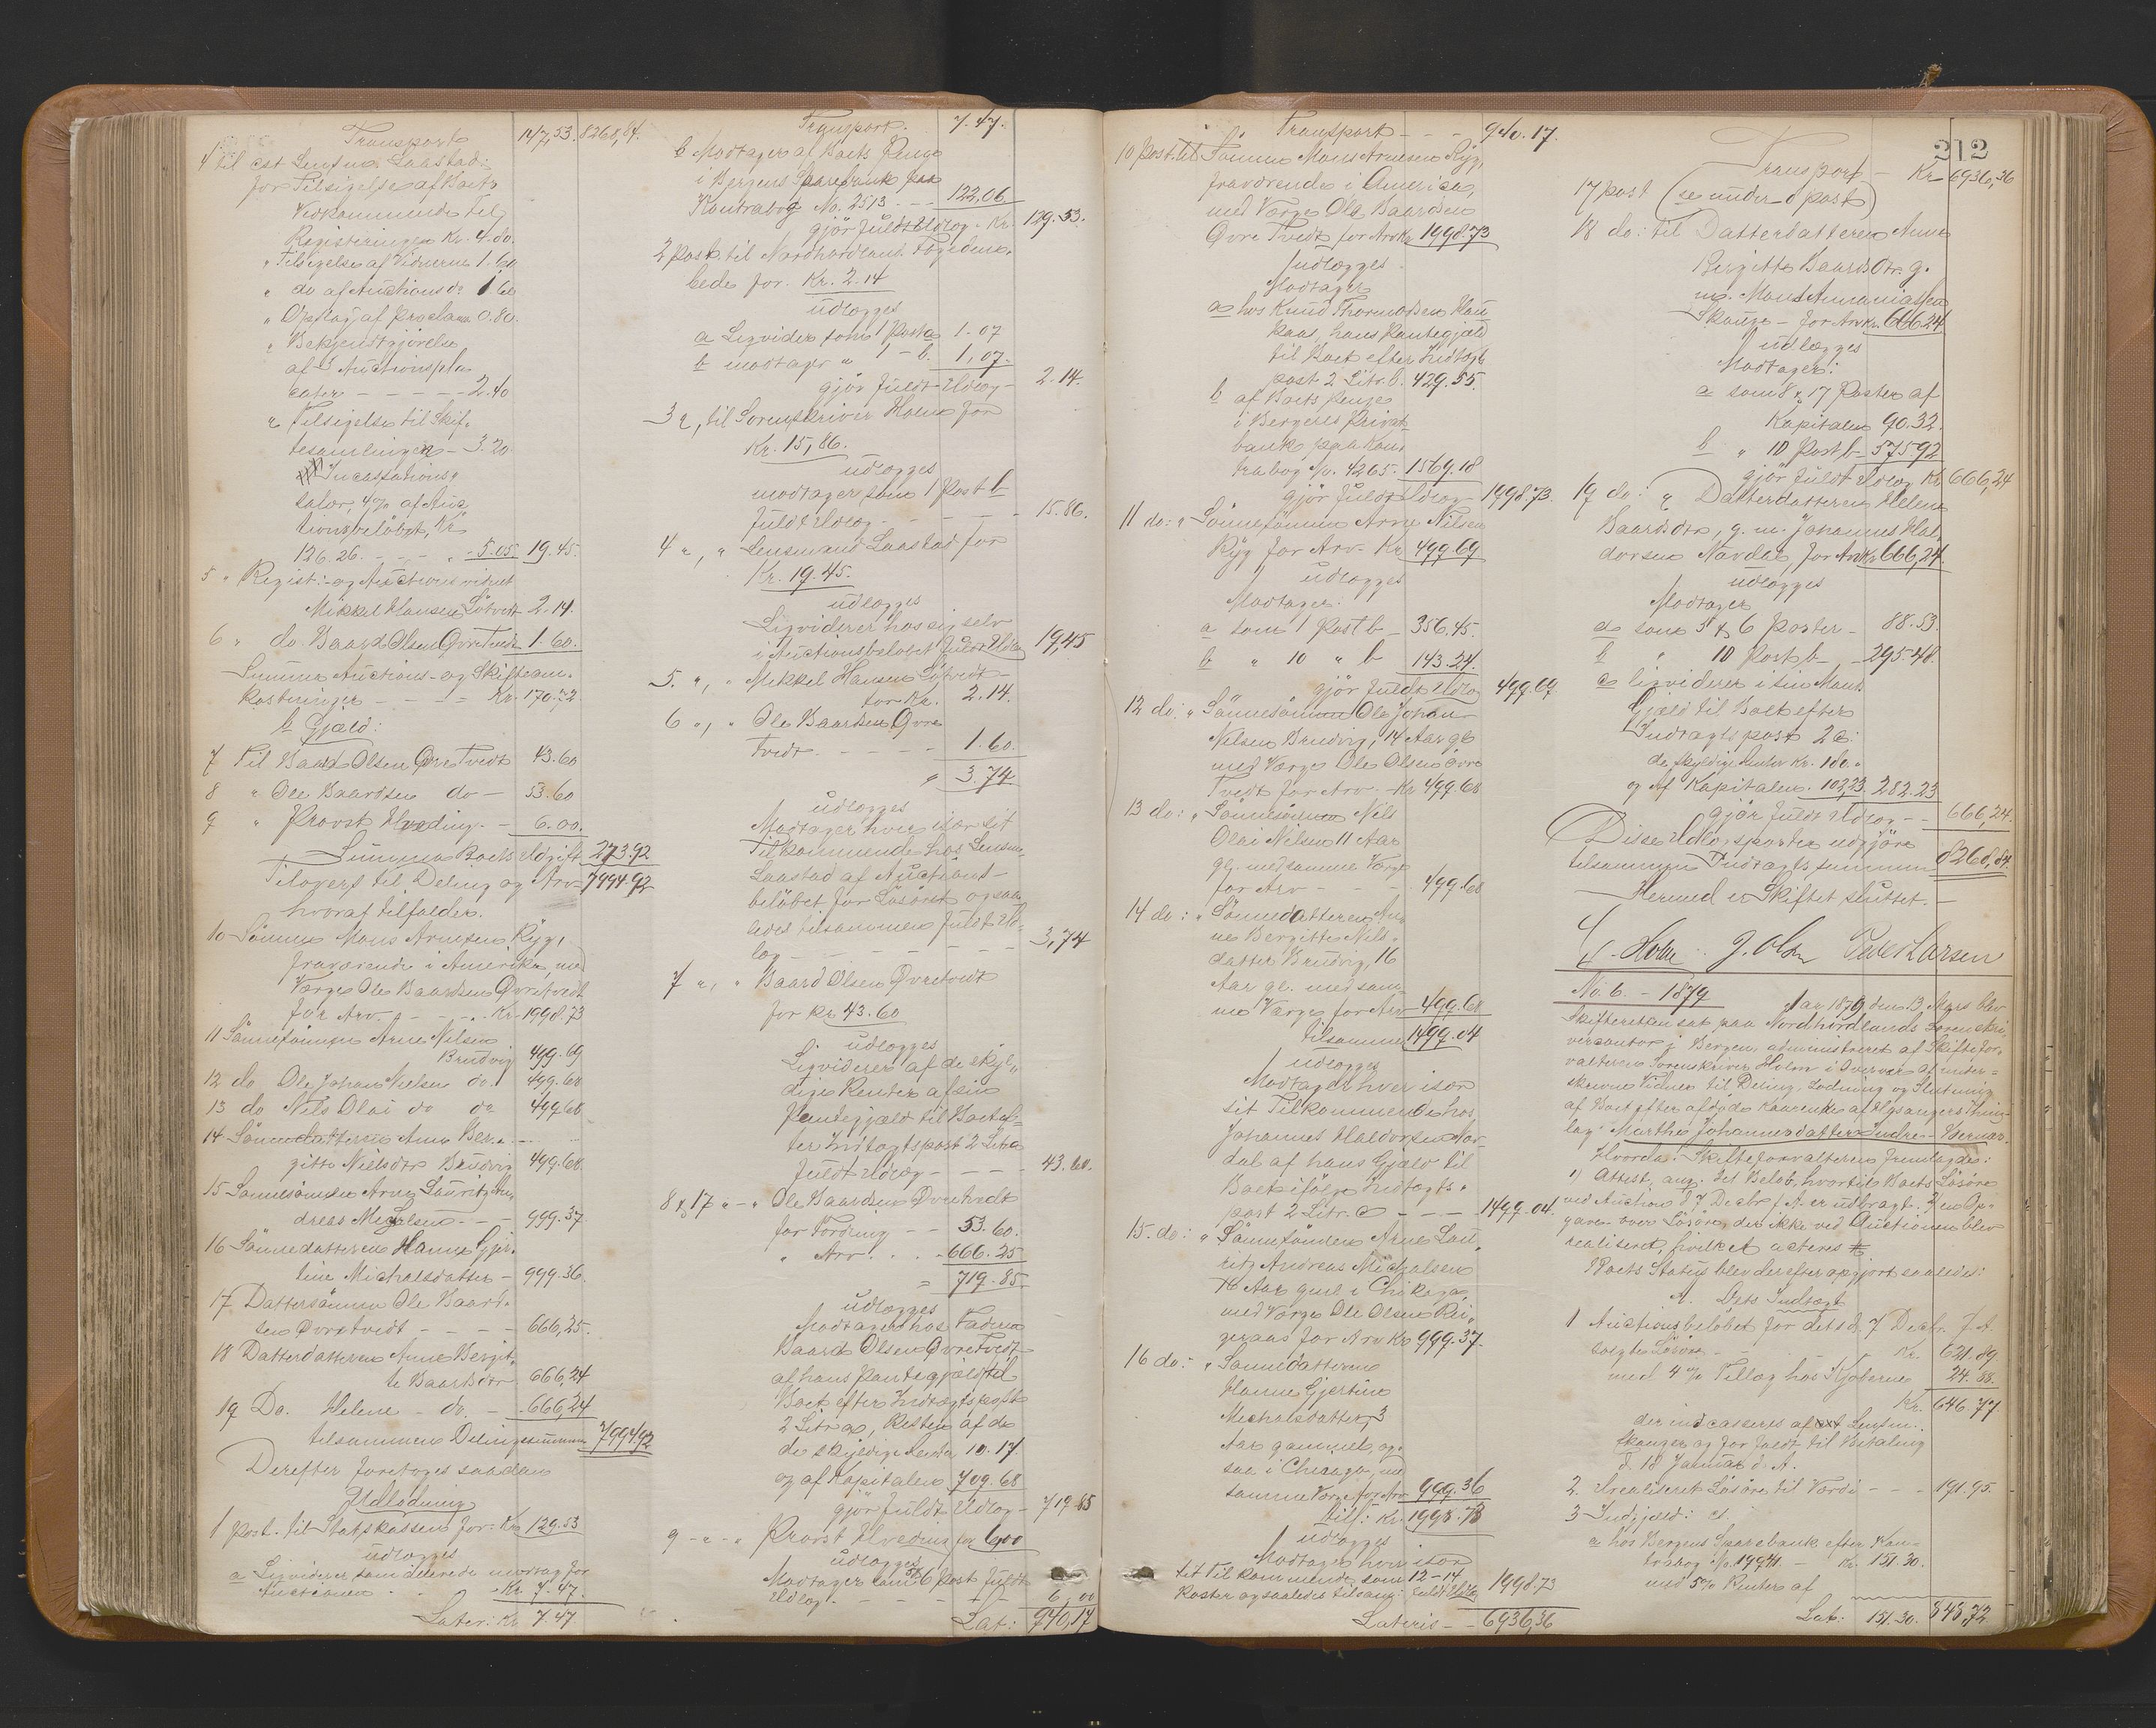 Transport 147,53. 8268,84.
4 til cst Lensm. Laastad:
for Tilsigelse af Boets
Vedkommende til
Registeringen Kr. 4.80.
" Tilsigelse af Vidnerne 1.60
" do af Auctionsdo 1.60
" Opslag af proclama 0.80.
" Bekjendtgjørelse
af 3 Auctionspla
cater - - - - - 2.40
" Tilsigelse til Skif-
tesamlingen - 3.20
Incassations-
salær, 4% af Auc
tionsbeløbet, Kr.
126.26. - - - 5.05 19.45.
5 " Regist:- og Auctionsvidnet
Mikkel Hansen Løtvedt 2.14.
6 " do. Baard Olsen Øvre Tvedt 1.60.
Summa Auctions- og Skifteom-
kostninger - - - Kr. 170.72
b Gjæld:
7 Til Baard Olsen Øvre Tvedt 43.60
8 " Ole Baardsen do - 53.60
9 " Provst Hvoding - 6.00.
Summa Boets Udgift 273.92
Tilovers til Deling og Arv - 7994.92
hvoraf tilfalder.
10 Sønnen Mons Arnesen Ryg,
fraværende i Amerika, med
Værge Ole Baardsen Øvretvedt
for Arv - - - Kr. 1998.73
11 Sønnesønnen Arne Nilsen
Brudvig 499.69
12 do Ole Johan Nielsen do. 499.68
13 do Nils Olai do do 499.68
14 Sønnedatteren Anne Ber-
gitte Nielsdtr Brudvig 499.68.
15 Sønnesønnen Arne Lauritz An-
dreas Michalsen - - 999.37
16 Sønnedatteren Hanne Gjer-
tine Michalsdatter - 999.36.
17 Dattersønnen Ole Baard-
sen Øvretvedt - - - 666,25.
18 Datterdatteren Anne Bergit-
te Baardsdtr 666,24
19 Do. Helene - do. - 666,24
tilsammen Delingssummen 7994,92
Derefter foretoges saadan
Udlodning
1 post. til Statskassen for: Kr. 129.53
udlægges
a Ligviderer som allerede modtag for
Auctionen - Kr. 7.47.
Later: Kr. 7.47
Transport. 7.47.
b Modtager af Boets Penge
i Bergens Sparebank paa
Kontrabog No. 2513 - - 122,06
gjør fuldt Udlæg - Kr. 129.53.
2 post. til Nordhordlands Fogedem-
bede for Kr. 2.14
udlægges
a Ligvider som 1 Post a 1.07
b modtager " 1 - b. 1,07.
gjør fuldt Udlæg - 2.14.
3 ", til Sorenskriver Holm for
Kr. 15,86.
udlægges
modtager som 1 Post b
fuldt Udlæg - - - - 15.86.
4 ", " Lensmand Laastad for
Kr. 19.45.
udlægges
Ligviderer hos sig selv
i Auctionsbeløbet fuldt Udlæg 19,45
5. ", " Mikkel Hansen Løtvedt -
for Kr. 2.14.
6 ", " Ole Baardsen Øvre
Tvedt - - - - 1.60.
" 3.74
udlægges
Modtager hver især sit
Tilkommende hos Lensm.
Laastad af Auctions-
beløbet for Løsøret og saa
ledes tilsammen fuldt Ud-
læg - - - - - 3,74
7 ", " Baard Olsen Øvretvedt
for Kr. 43.60
udlægges
Ligviderer af de skyl-
dige Renter af sin
Pantegjæld til Boet ef-
ter Indtægtspost 2 Litr a
fuldt Udlæg - - - - 43.60.
8 & 17 " - " Ole Baardsen Øvretvedt
for Fordring - - 53.60.
" Arv. - - - 666.25
= 719.85.
udlægges
Modtager hos Faderen
Baard Olsen Øvre Tvedt
af hans Pantegjæld til
Boet efter Indtægtspost
2 Litr a, Resten af de
de skyldige Renter 10.17
og af Kapitalen 709.68
gjør fuldt Udlæg - 719.85
9 - " - " Provst Hvoding for 6,00
udlægges
Modtager som 5 & 6 post fuldt
Udlæg. - - - - 6,00
Lat: 940,17
Transport - - - 940.17.
10 post. til Sønnen Mons Arnesen Ryg,
fraværende i America,
med Værge Ole Baardsen
Øvre Tvedt for Arv Kr. 1998.73
udlægges
Modtager
a hos Knud Thormodsen Hau
kaas, hans Pantegjæld
til Boet efter Indtægts
post 2 Litr. b. 429.55.
b af Boets penge
i Bergens Privat
bank paa Kon
trabog No. 4265. 1569.18
gjør fuldt Udlæg - 1998.73.
11 do: " Sønnesønnen Arne Nilsen
Ryg for Arv - Kr. 499.69
udlægges
Modtager.
a som 1 Post b - 356.45.
b " 10 " b 143.24.
gjør fuldt Udlæg 499.69
12 do: " Sønnesønnen Ole Johan
Nilsen Brudvig, 14 Aar gl.
med Værge Ole Olsen Øvre
Tvedt for Arv - Kr. 499.68
13 do: " Sønnesønnen Nils
Olai Nilsen 11 Aar
gl. med samme Værge
for Arv - - - 499.68
14 do: " Sønnedatteren An
ne Bergitte Nils-
datter Brudvig, 16
Aar gl. med sam-
me Værge for Arv 499.68
tilsammen 1499.04
udlægges
Modtager hver især
sit Tilkommende hos
Johannes Haldorsen Nor
dal af hans Gjæld til
Boet ifølge Indtægts-
post 2 Litr. c - - - 1499.04.
15. do: " Sønnesønnen Arne Lau
ritz Andreas Michalsen
16 Aar gml i Chikago,
med Værge Ole Olsen Rei-
geraas for Arv Kr. 999.37.
16 do: - " Sønnedatteren
Hanne Gjertine
Michalsdatter, 3
Aar gammel, og-
saa i Chicago, med
samme Værge for Arv 999.36
tils: Kr. 1998.73
udlægges
Modtager hver især
sit Tilkommende som 12-14
Poster og saaledes tilsam: fuldt Udlæg 1998.73
Lateris - - 6936,36
212
Transport - Kr. 6936,36
17 post (se under 8 post)
18 do: til Datterdatteren Anne
Bergitte Baardsdtr. g.
m. Mons Annaniassen
Skauge - for Arv Kr. 666.24
udlægges
Modtager:
a som 8 & 17 Poster af
Kapitalen 90.32.
b " 10 Post b - 575.92
gjør fuldt Udlæg Kr. 666,24
19 do: " Datterdatteren Helene
Baardsdtr, g. m. Johannes Hal
dorsen Nordal, for Arv Kr. 666,24.
udlægges
Modtager
a som 5 & 6 poster - 88.53.
b " 10 Post b - 295.48.
c ligviderer i sin Mands
Gjæld til Boet efter
Indtægtspost 2 c:
de skyldige Renter Kr. 180.
og af Kapitalen 102,23. 282.23
gjør fuldt Udlæg - - 666,24.
Disse Udlægsposter udgjøre
tilsammen Indtægtssummen 8268,84.
Hermed er Skiftet sluttet. -
Holm. J. Olsen Peder Larsen
No. 6. - 1879
Aar 1879 den 13 Mars blev
Skifteretten sat paa Nordhordlands Sorenskri-
vercontor i Bergen, administreret af Skiftefor-
valteren Sorenskriver Holm i Overvær af under-
skrevne Vidner til Deling, Lodning og Slutning
af Boet efter afdøde Kaarenke af Alversangers Thing-
lag Marthe Johannesdatter Indre - Bernæs.
Hvorda: Skifteforvalteren fremlagde:
1) Attest, ang. det Beløb, hvortil Boets Løsøre
ved Auction d. 7 Decbr. f. A. er udbragt. 2) en Op-
gave over Løsøre, der ikke ved Auctionen blev
realiseret, hvilket acteres
Boets Status blev derefter opgjort saaledes:
A. Dets Indtægt
1 Auctionsbeløbet for det d. 7 Decbr. f. A.
solgte Løsøre - - - Kr. 621.89
med 4% Tillæg hos Kjøberne 24.88.
Kr. 646.77.
der indcasseres af Lensm.
Skauge og forfaldt til Betaling
d. 18 Januar d. A.
2. Urealiseret Løsøre til Værdi - - - 191.95.
3 Indgjæld:
a hos Bergens Sparebank efter Kon-
trabog No. 19941 - Kr. 151.30.
med 5% Renter af
Lat: 151.30. 838,72